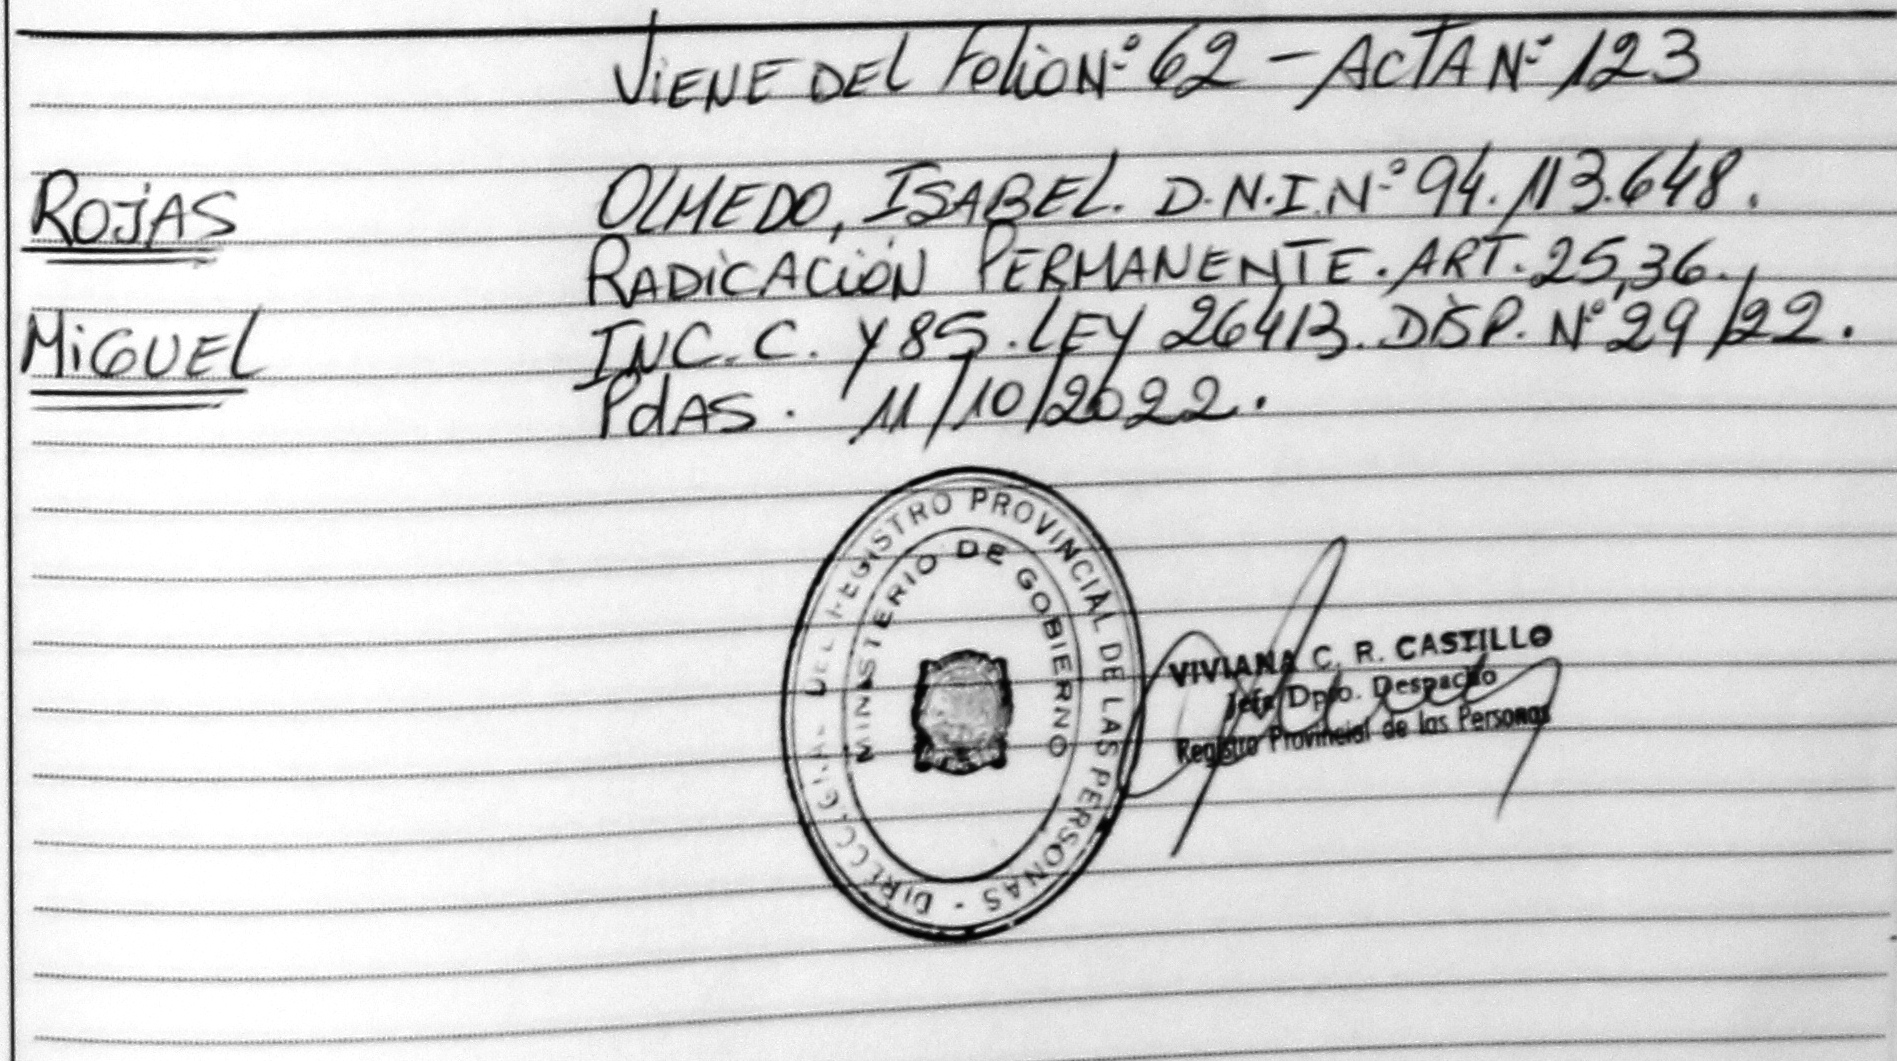 VIENE DEL Folio N° 62 - ACTA N° 123
ROJAS
MIGUEL
OLMEDO, ISABEL. D.N.I. N° 94.113.648.
RADICACIÓN PERMANENTE. ART. 25, 36.
INC. C. Y 85. LEY 26413. DISP. N° 29/22.
PdAS. 11/10/2022.
DIRECC. GRAL. DEL REGISTRO PROVINCIAL DE LAS PERSONAS -
MINISTERIO DE GOBIERNO
VIVIANA C. R. CASTILLO
Jefa Dpto. Despacho
Registro Provincial de las Personas